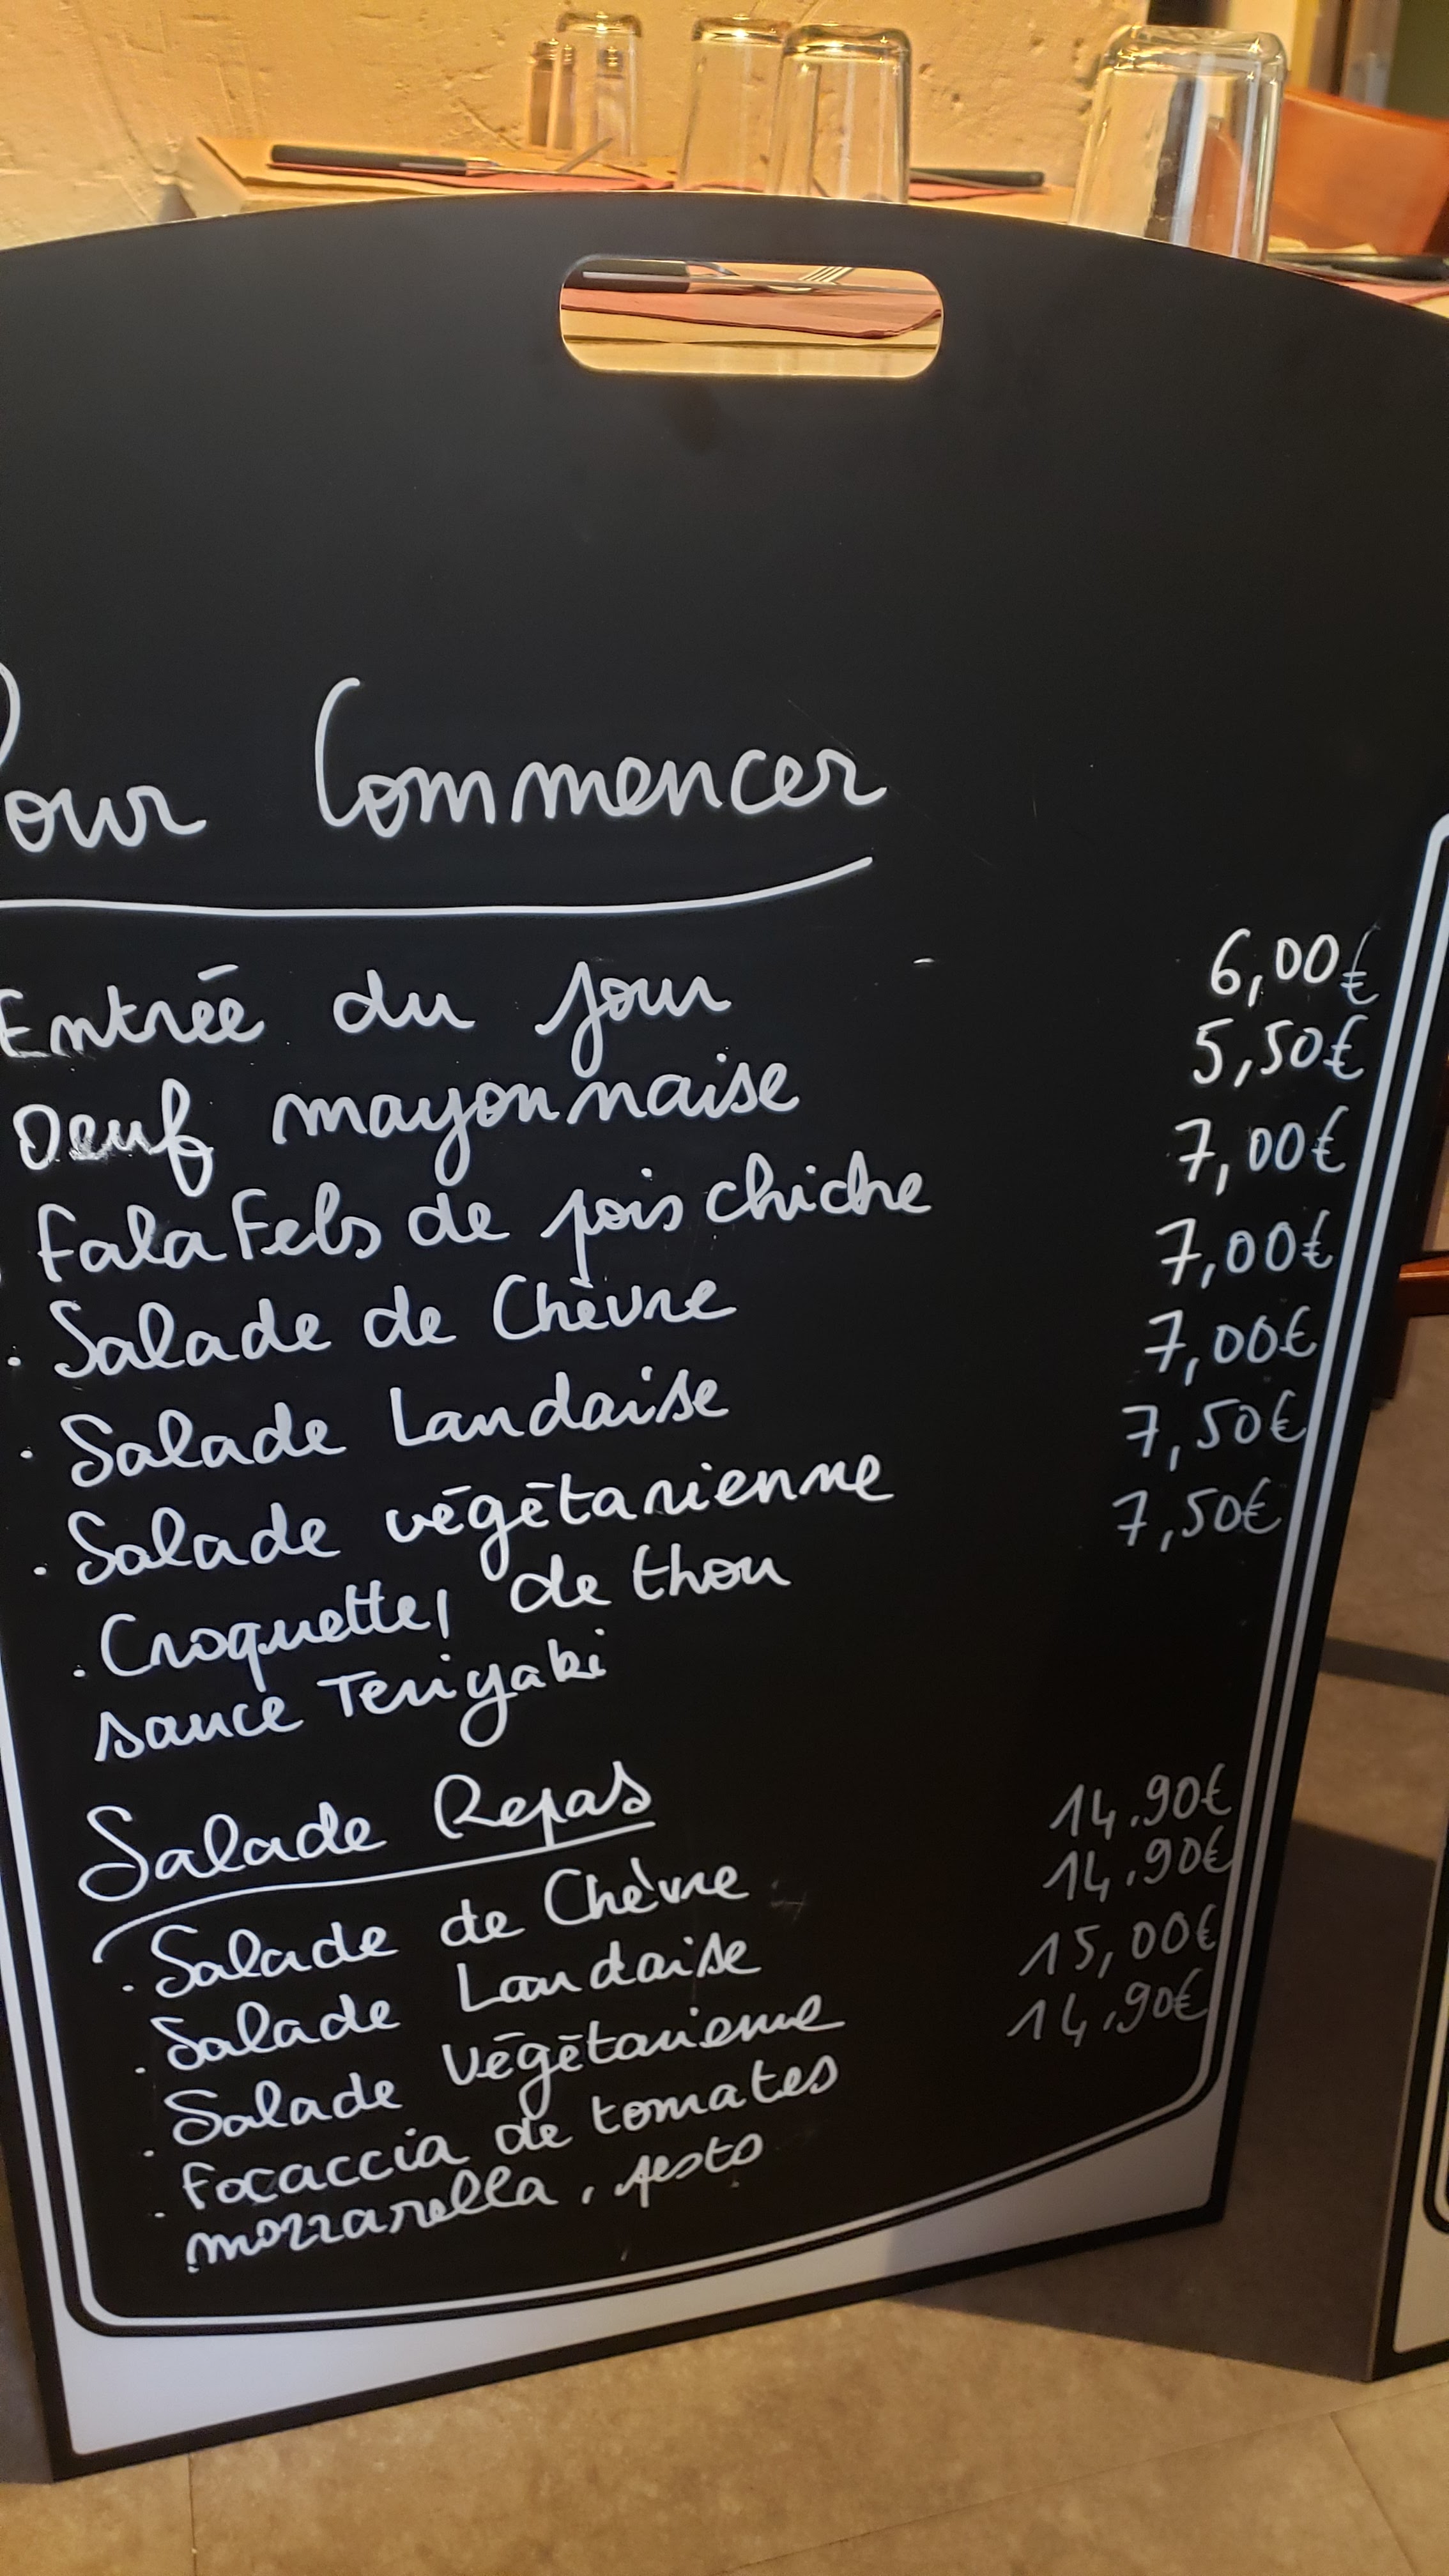 Pour Commencer
Entrée du jour 6,00€
Oeuf mayonnaise 5,50€
Falafels de pois chiche 7,00€
. Salade de Chèvre 7,00€
. Salade Landaise 7,00€
. Salade végétarienne 7,50€
. Croquettes de thon 7,50€
sauce Teriyaki
Salade Repas
. Salade de Chèvre 14.90€
. Salade Landaise 14.90€
. Salade Végétarienne 15,00€
. Focaccia de tomates 14.90€
mozzarella, pesto